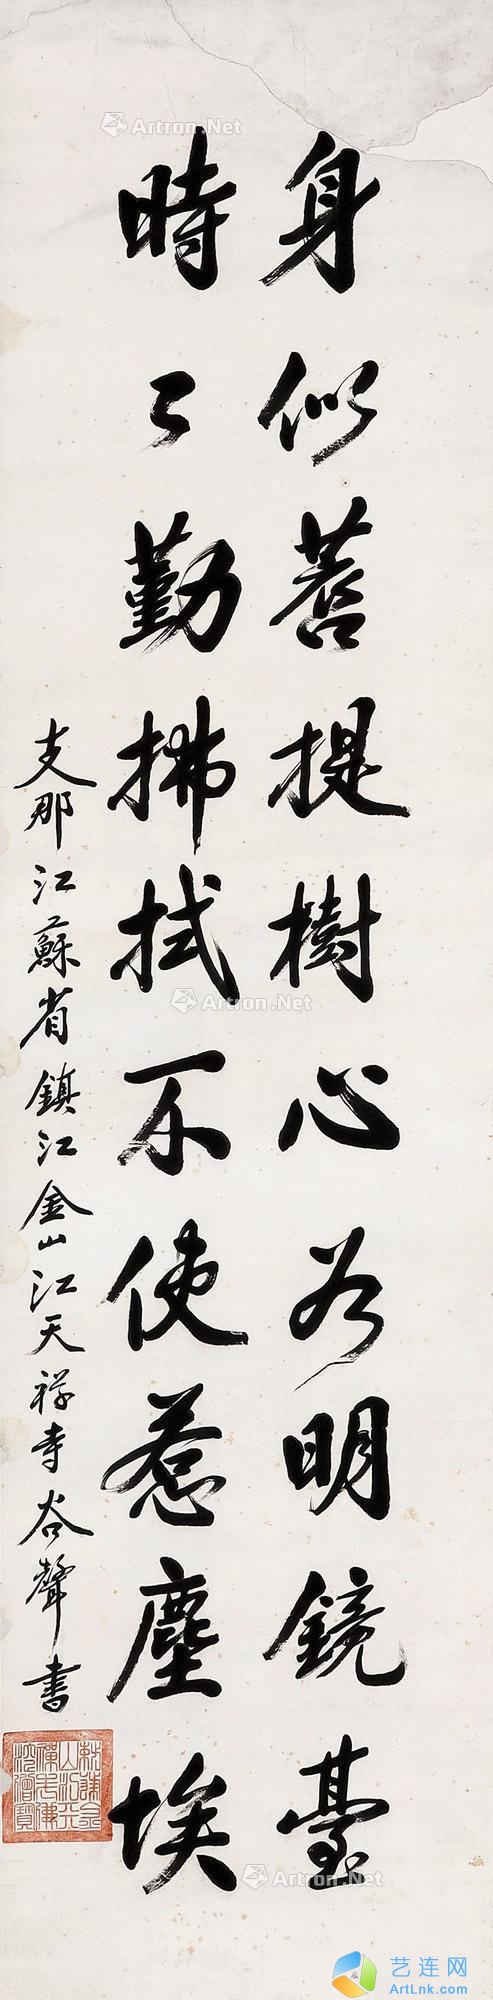 身似菩提樹心如明鏡臺
時〻勤拂拭不使惹塵埃
支那江蘇省鎮江金山江天禪寺谷聲書
Artron.Net
Artron.Net
Artron.Net
Artron.Net
Artron.Net
艺连网
ArtLnk.com